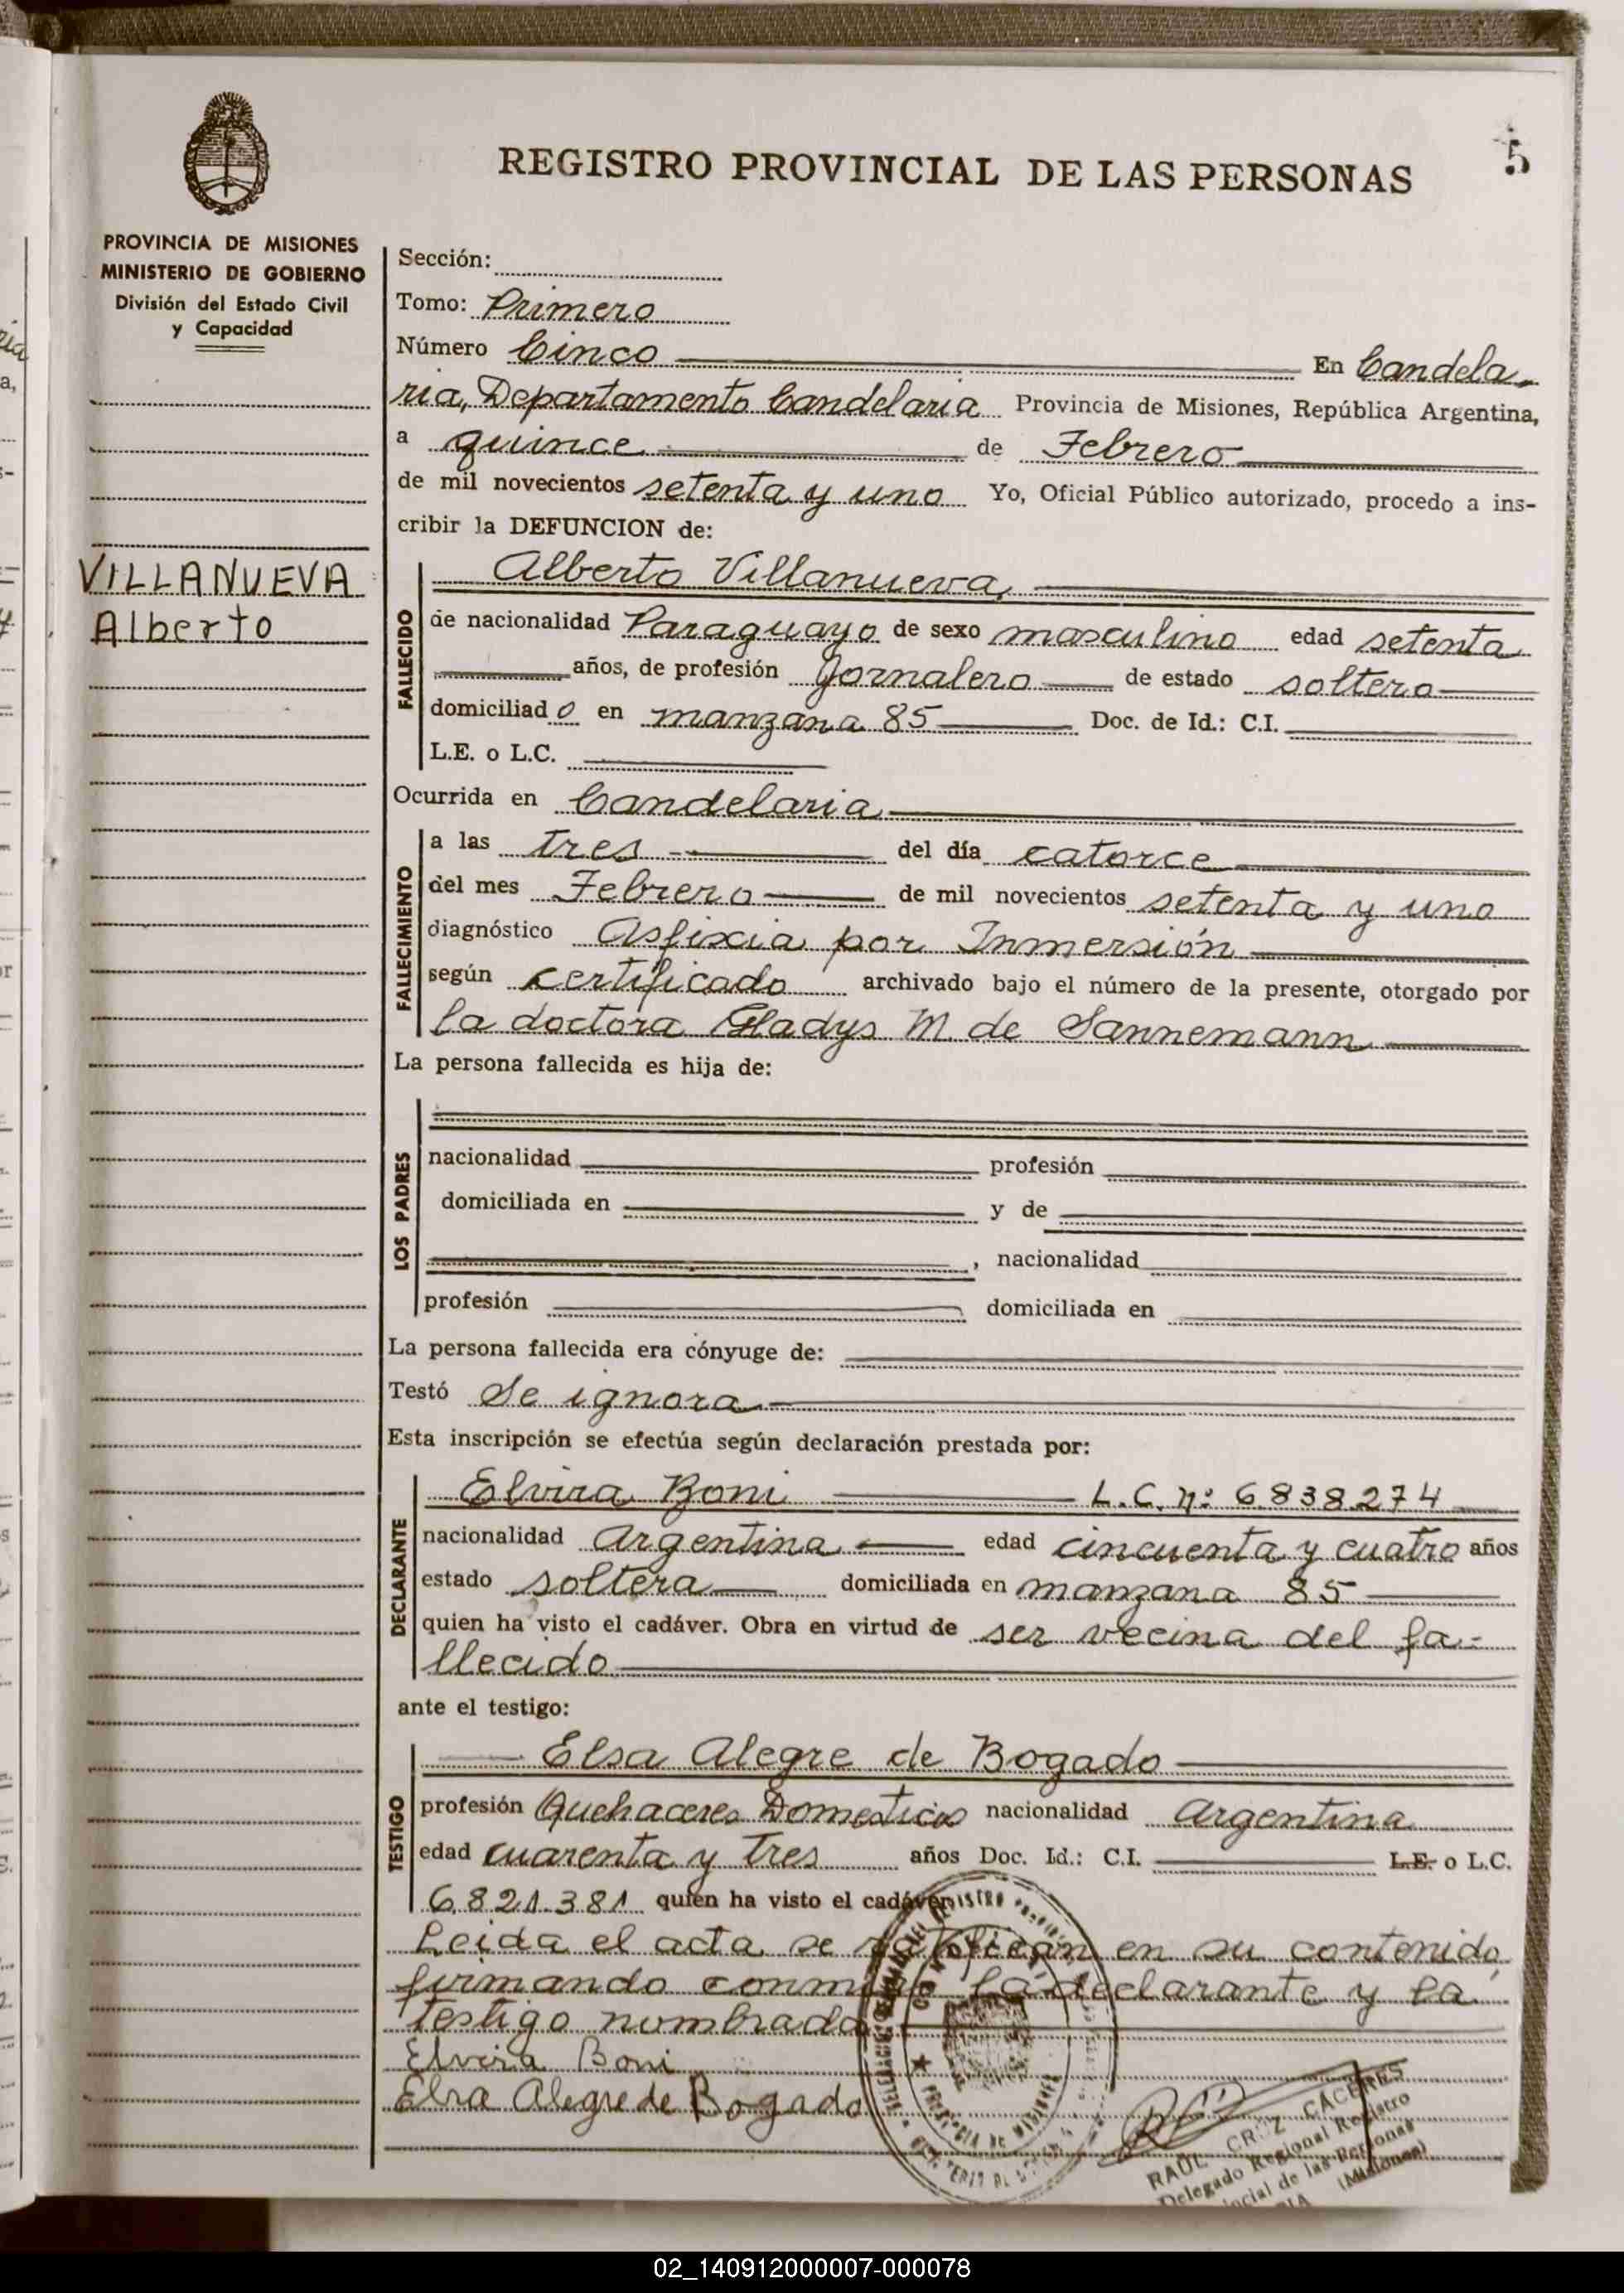 5
REGISTRO PROVINCIAL DE LAS PERSONAS
PROVINCIA DE MISIONES
MINISTERIO DE GOBIERNO
División del Estado Civil
y Capacidad
VILLANUEVA
Alberto
Sección:
Tomo: Primero
Número Cinco En Candela-
ria, Departamento Candelaria Provincia de Misiones, República Argentina,
a quince de Febrero
de mil novecientos setenta y uno Yo, Oficial Público autorizado, procedo a ins-
cribir la DEFUNCION de:
FALLECIDO
Alberto Villanueva
de nacionalidad Paraguayo de sexo masculino edad setenta
años, de profesión Jornalero de estado soltero
domiciliado en manzana 85 Doc. de Id.: C.I.
L.E. o L.C.
Ocurrida en Candelaria
FALLECIMIENTO
a las tres del día catorce
del mes Febrero de mil novecientos setenta y uno
diagnóstico Asfixia por Inmersión
según certificado archivado bajo el número de la presente, otorgado por
la doctora Gladys M. de Sannemann
La persona fallecida es hija de:
LOS PADRES
nacionalidad profesión
domiciliada en y de
, nacionalidad
profesión domiciliada en
La persona fallecida era cónyuge de:
Testó Se ignora
Esta inscripción se efectúa según declaración prestada por:
DECLARANTE
Elvira Boni L.C. Nº 6838274
nacionalidad Argentina edad cincuenta y cuatro años
estado soltera domiciliada en manzana 85
quien ha visto el cadáver. Obra en virtud de ser vecina del fa-
llecido
ante el testigo:
TESTIGO
Elsa Alegre de Bogado
profesión Quehaceres Domesticos nacionalidad Argentina
edad cuarenta y tres años Doc. Id.: C.I. L.E. o L.C.
6.821.381 quien ha visto el cadáver
Leida el acta se ratifican en su contenido,
firmando conmigo la declarante y la
testigo nombrada
Elvira Boni
Elsa Alegre de Bogado
RAUL CRUZ CACERES
Delegado Regional Registro
de las Personas
(Misiones)
02_140912000007-000078